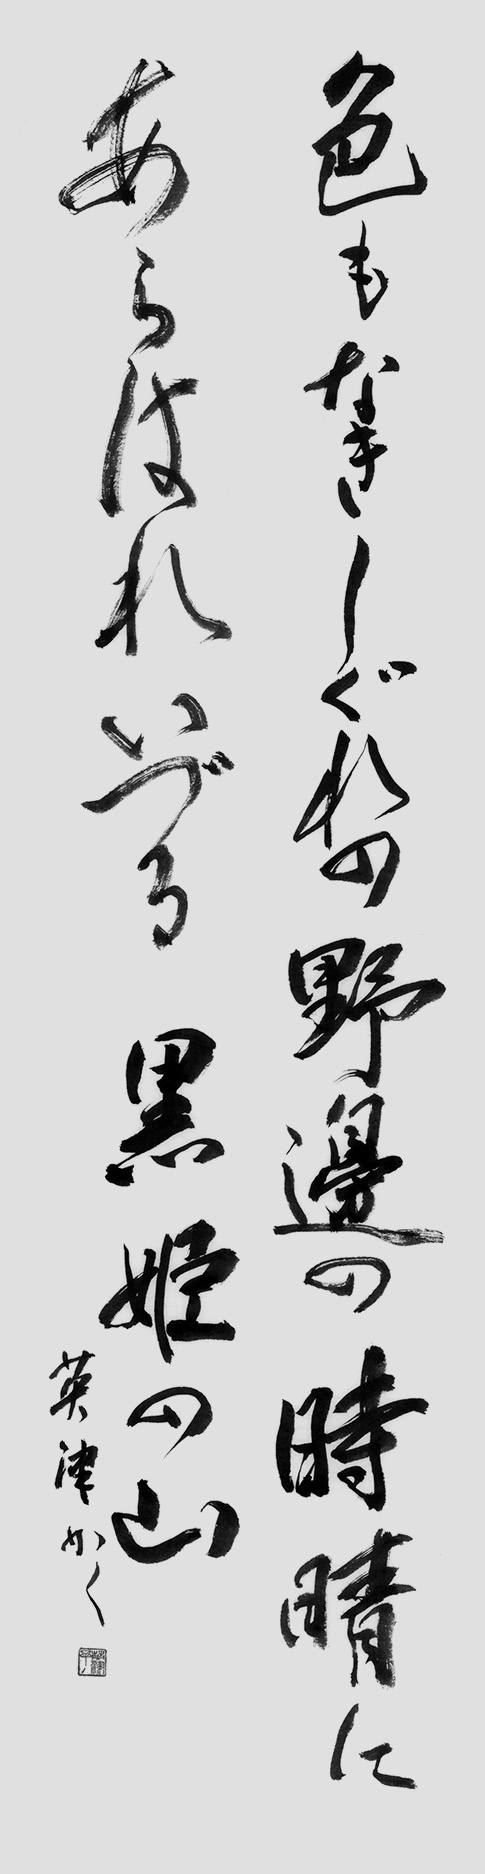 色もなきしぐれの野邊の時晴に
あらはれいづる黒姫の山
英津かく